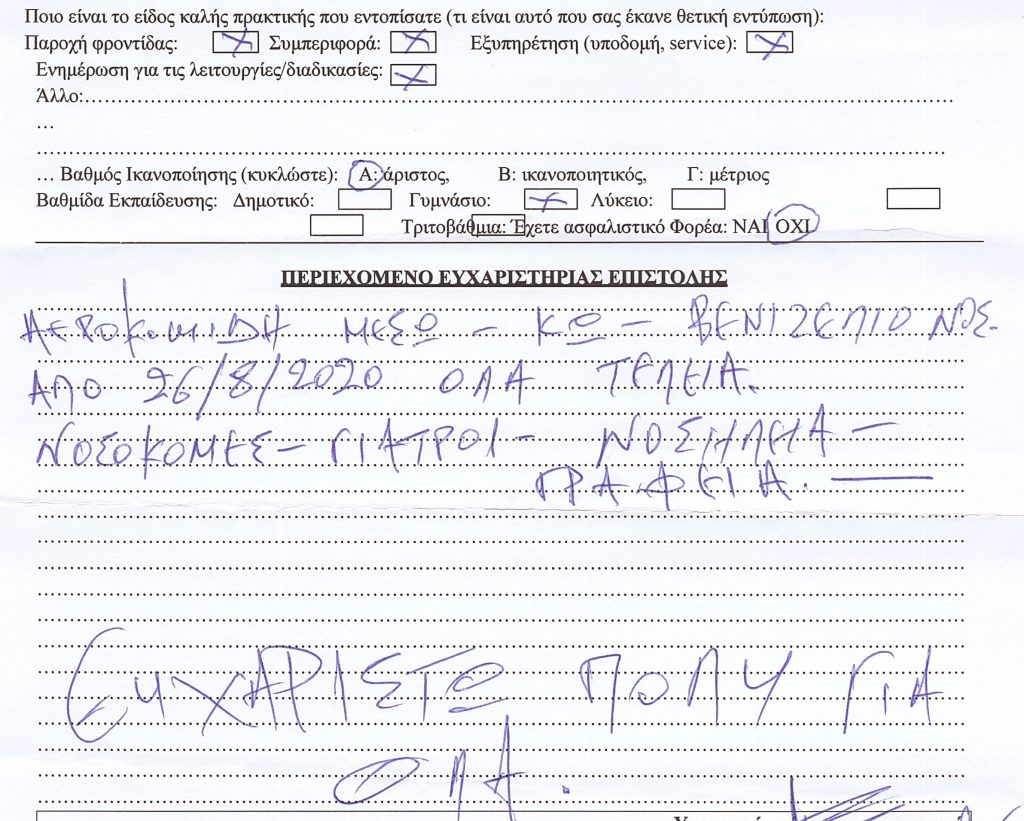 Ποιο είναι το είδος καλής πρακτικής που εντοπίσατε (τι είναι αυτό που σας έκανε θετική εντύπωση):
Παροχή φροντίδας: Συμπεριφορά: Εξυπηρέτηση (υποδομή, service):
Ενημέρωση για τις λειτουργίες/διαδικασίες:
Άλλο:
…
… Βαθμός Ικανοποίησης (κυκλώστε): Α: άριστος, Β: ικανοποιητικός, Γ: μέτριος
Βαθμίδα Εκπαίδευσης: Δημοτικό: Γυμνάσιο: Λύκειο:
Τριτοβάθμια: Έχετε ασφαλιστικό Φορέα: ΝΑΙ ΟΧΙ
ΠΕΡΙΕΧΟΜΕΝΟ ΕΥΧΑΡΙΣΤΗΡΙΑΣ ΕΠΙΣΤΟΛΗΣ
ΑΕΡΟΚΟΜΙΔΗ ΜΕΣΩ – ΚΩ – ΒΕΝΙΖΕΛΙΟ ΝΟΣ.
ΑΠΟ 26/8/2020 ΟΛΑ ΤΕΛΕΙΑ.
ΝΟΣΟΚΟΜΕΣ – ΓΙΑΤΡΟΙ – ΝΟΣΗΛΕΙΑ –
ΓΡΑΦΕΙΑ. —
ΕΥΧΑΡΙΣΤΩ ΠΟΛΥ ΓΙΑ
ΟΛΑ.